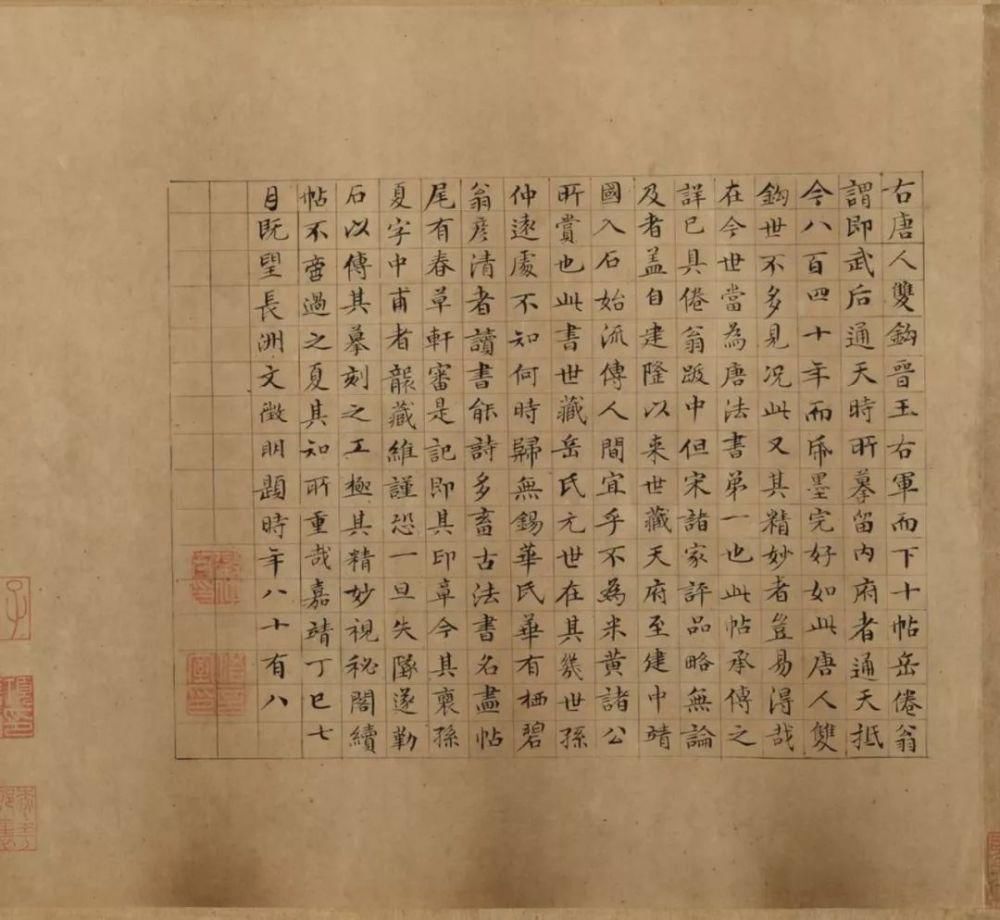 右唐人雙鈎晉王右軍而下十帖岳倦翁
謂即武后通天時所摹留內府者通天抵
今八百四十年而帋墨完好如此唐人雙
鈎世不多見況此又其精妙者豈易得哉
在今世當為唐法書弟一也此帖承傳之
詳已具倦翁跋中但宋諸家評品略無論
及者盖自建隆以来世藏天府至建中靖
國入石始流傳人間宜乎不為米黃諸公
所賞也此書世藏岳氏元世在其幾世孫
仲遠處不知何時歸無錫華氏華有栖碧
翁彦清者讀書能詩多畜古法書名畫帖
尾有春草軒審是記即其印章今其裔孫
夏字中甫者襲藏維謹恐一旦失墜遂勒
石以傳其摹刻之工極其精妙視秘閣續
帖不啻過之夏其知所重哉嘉靖丁巳七
月既望長洲文徵明題時年八十有八